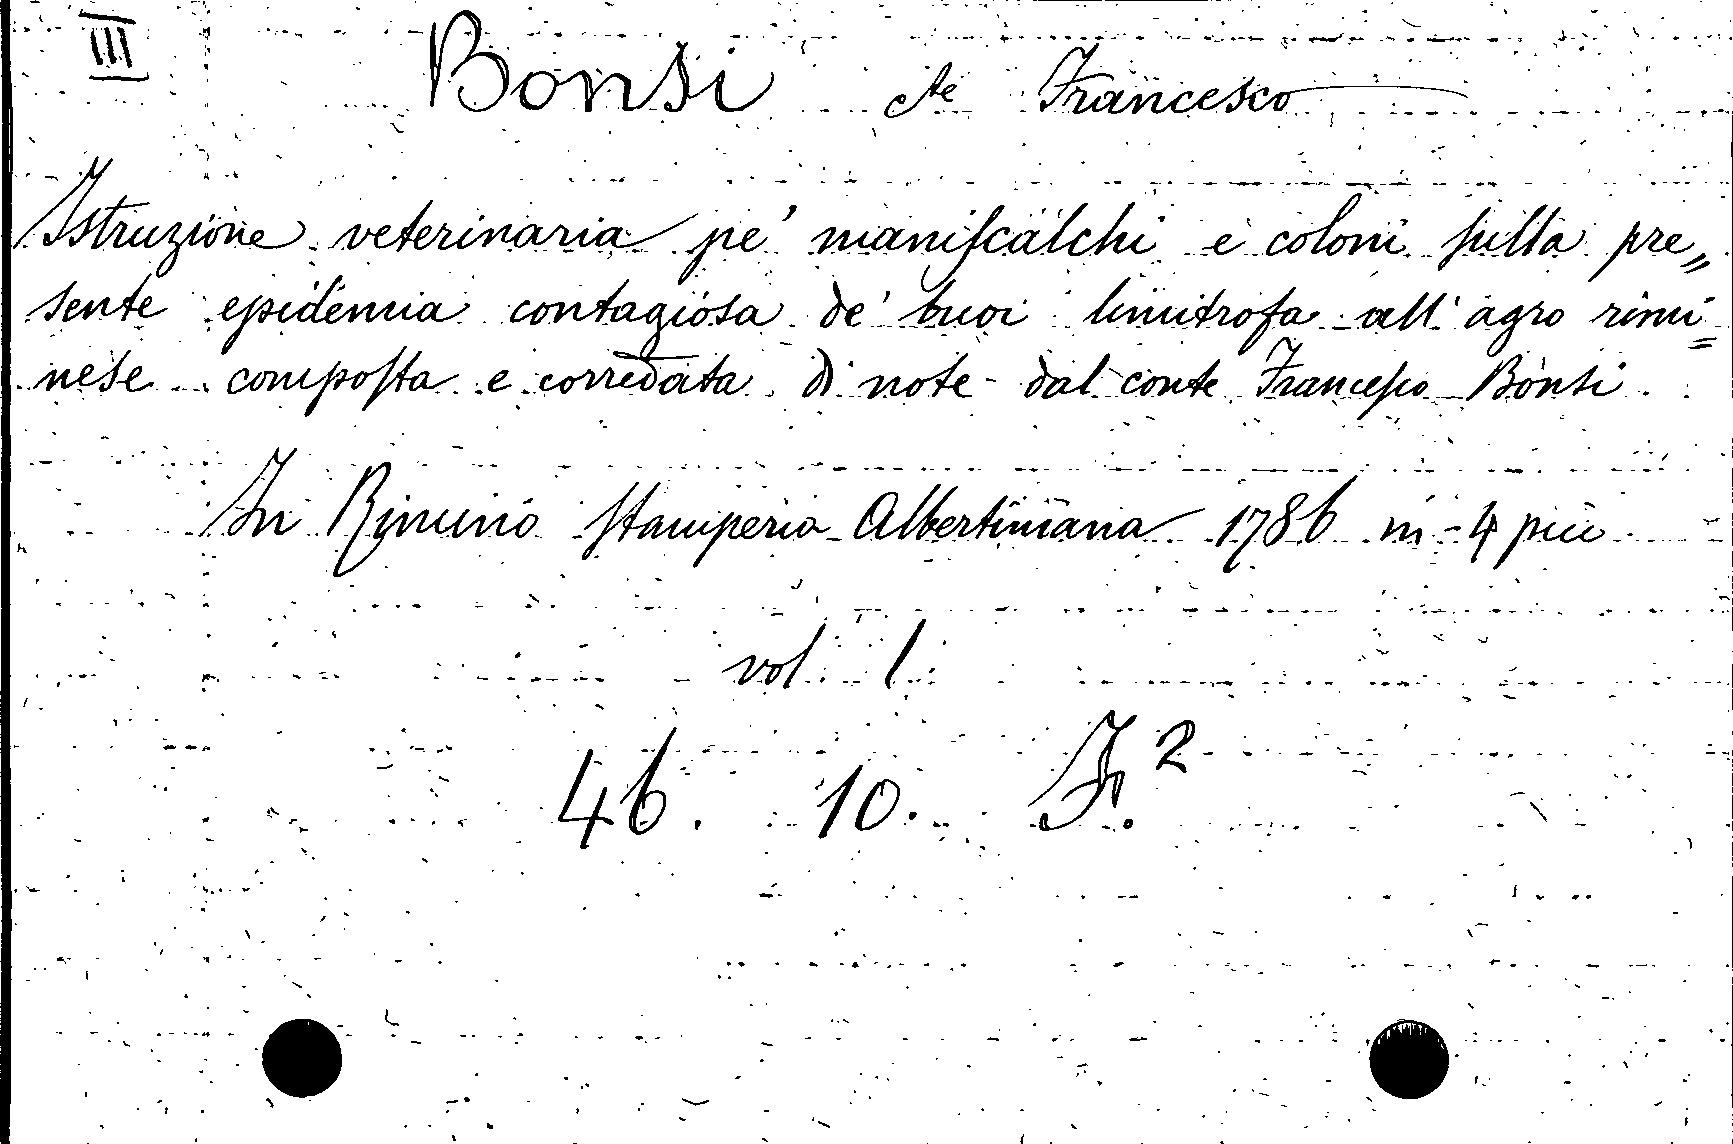 III
Bonsi cte Francesco
Istruzione veterinaria pe' maniſcalchi e coloni ſulla pre„
sente epidemia contagiosa de' buoi limitrofa all' agro rimi=
nese compoſta e corredata di note dal conte Franceſco Bonsi
In Rimino Stamperia Albertiniana 1786 in-4 picc
vol 1
46. 10. F.²